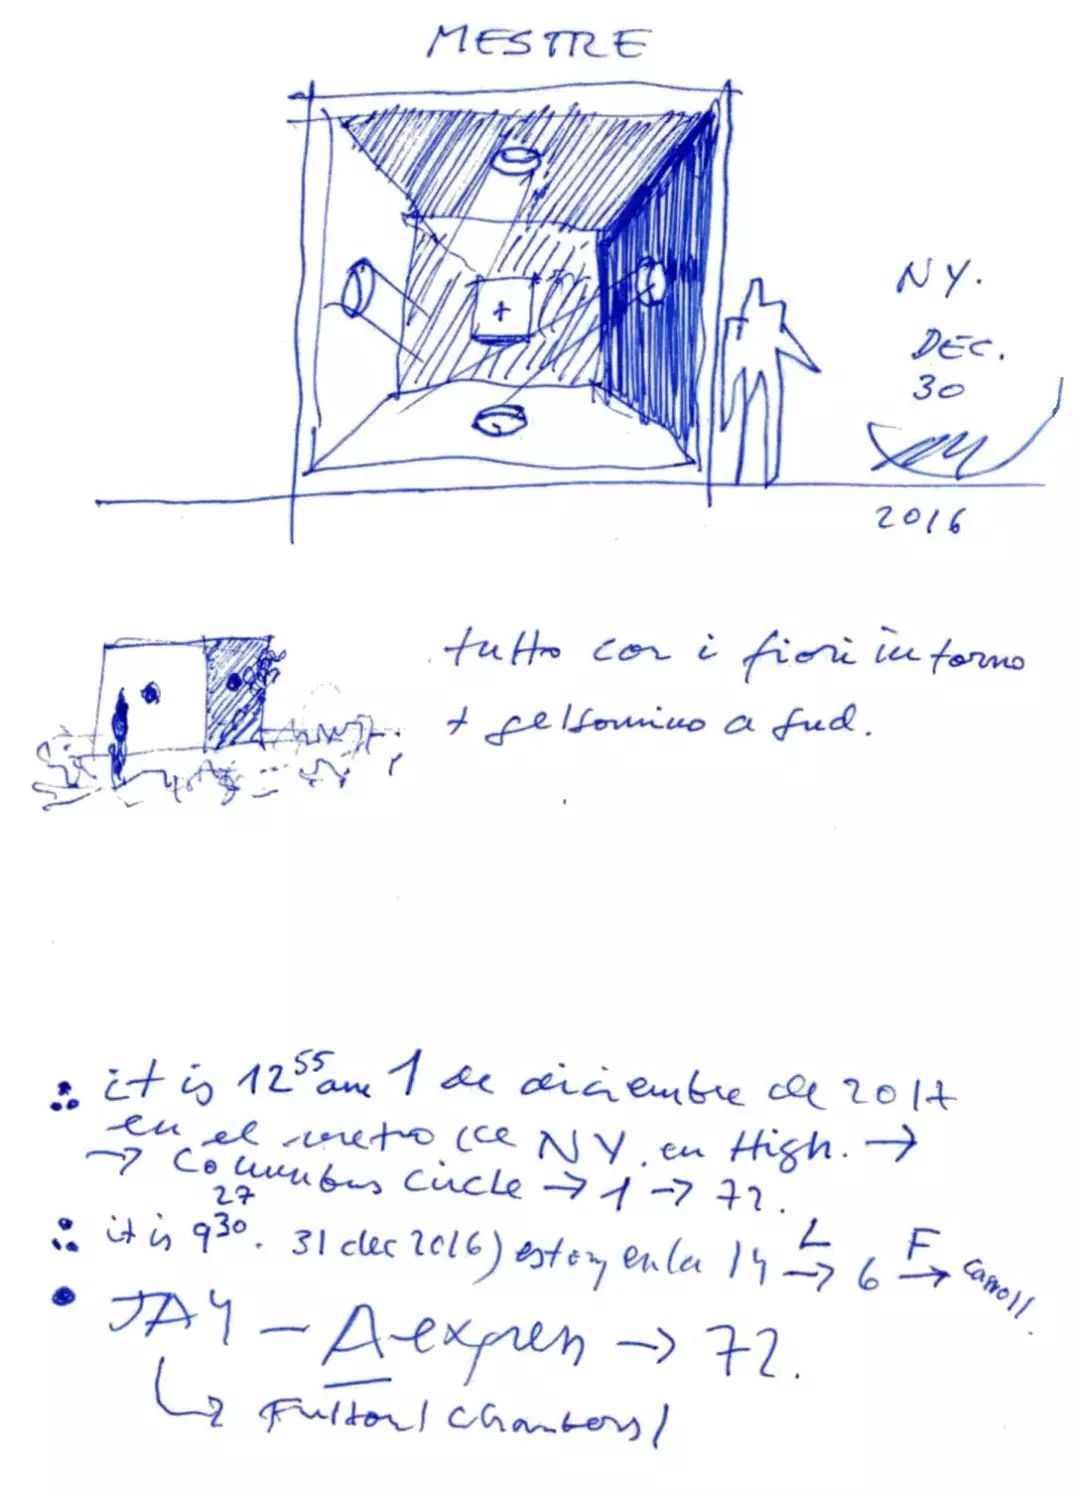 MESTRE
NY.
DEC.
30
2016
tutto con i fiori intorno
+ gelsomino a sud.
it is 12 55 am 1 de diciembre de 2017
en el metro de NY. en High. →
→ Columbus Circle → 1 → 72.
27
it is 9 30. 31 dec 2016) estoy en la 14 L → 6 F → Carroll.
JAY – A express → 72.
↳ Fulton/Chambers/